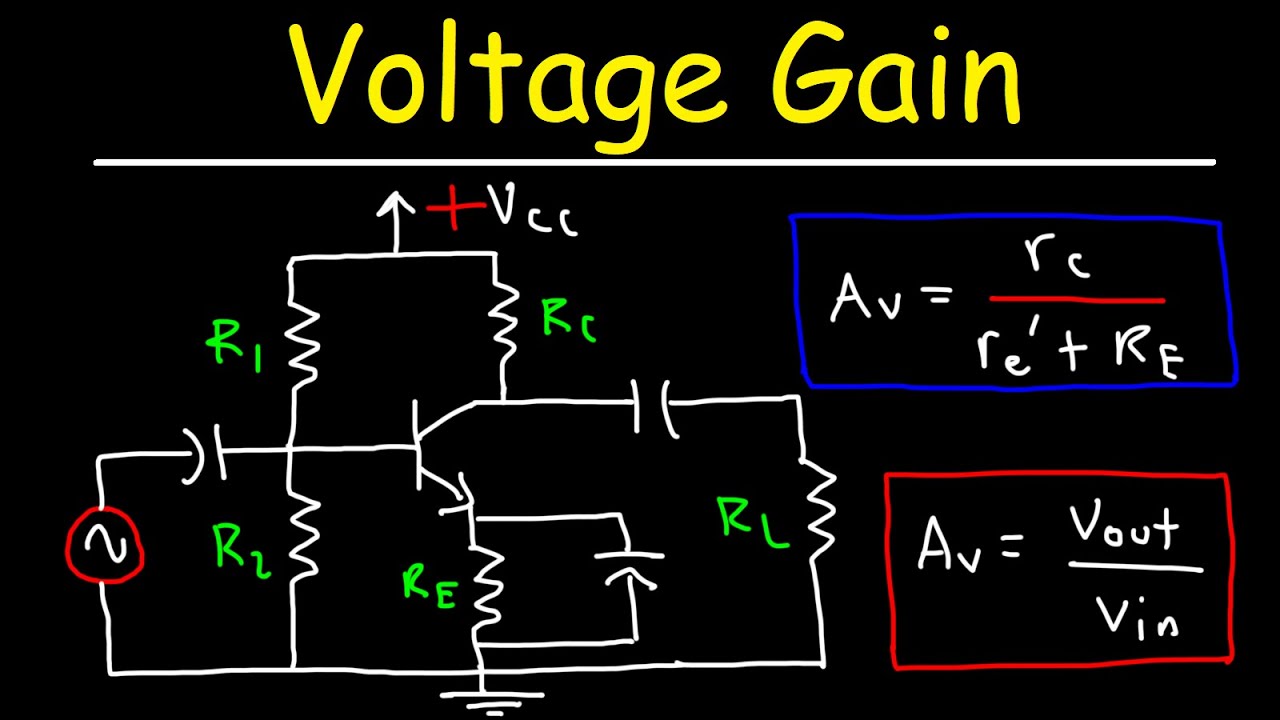 Voltage Gain
+Vcc
R1
Rc
R2
RE
RL
Av = rc / re' + RE
Av = Vout / Vin